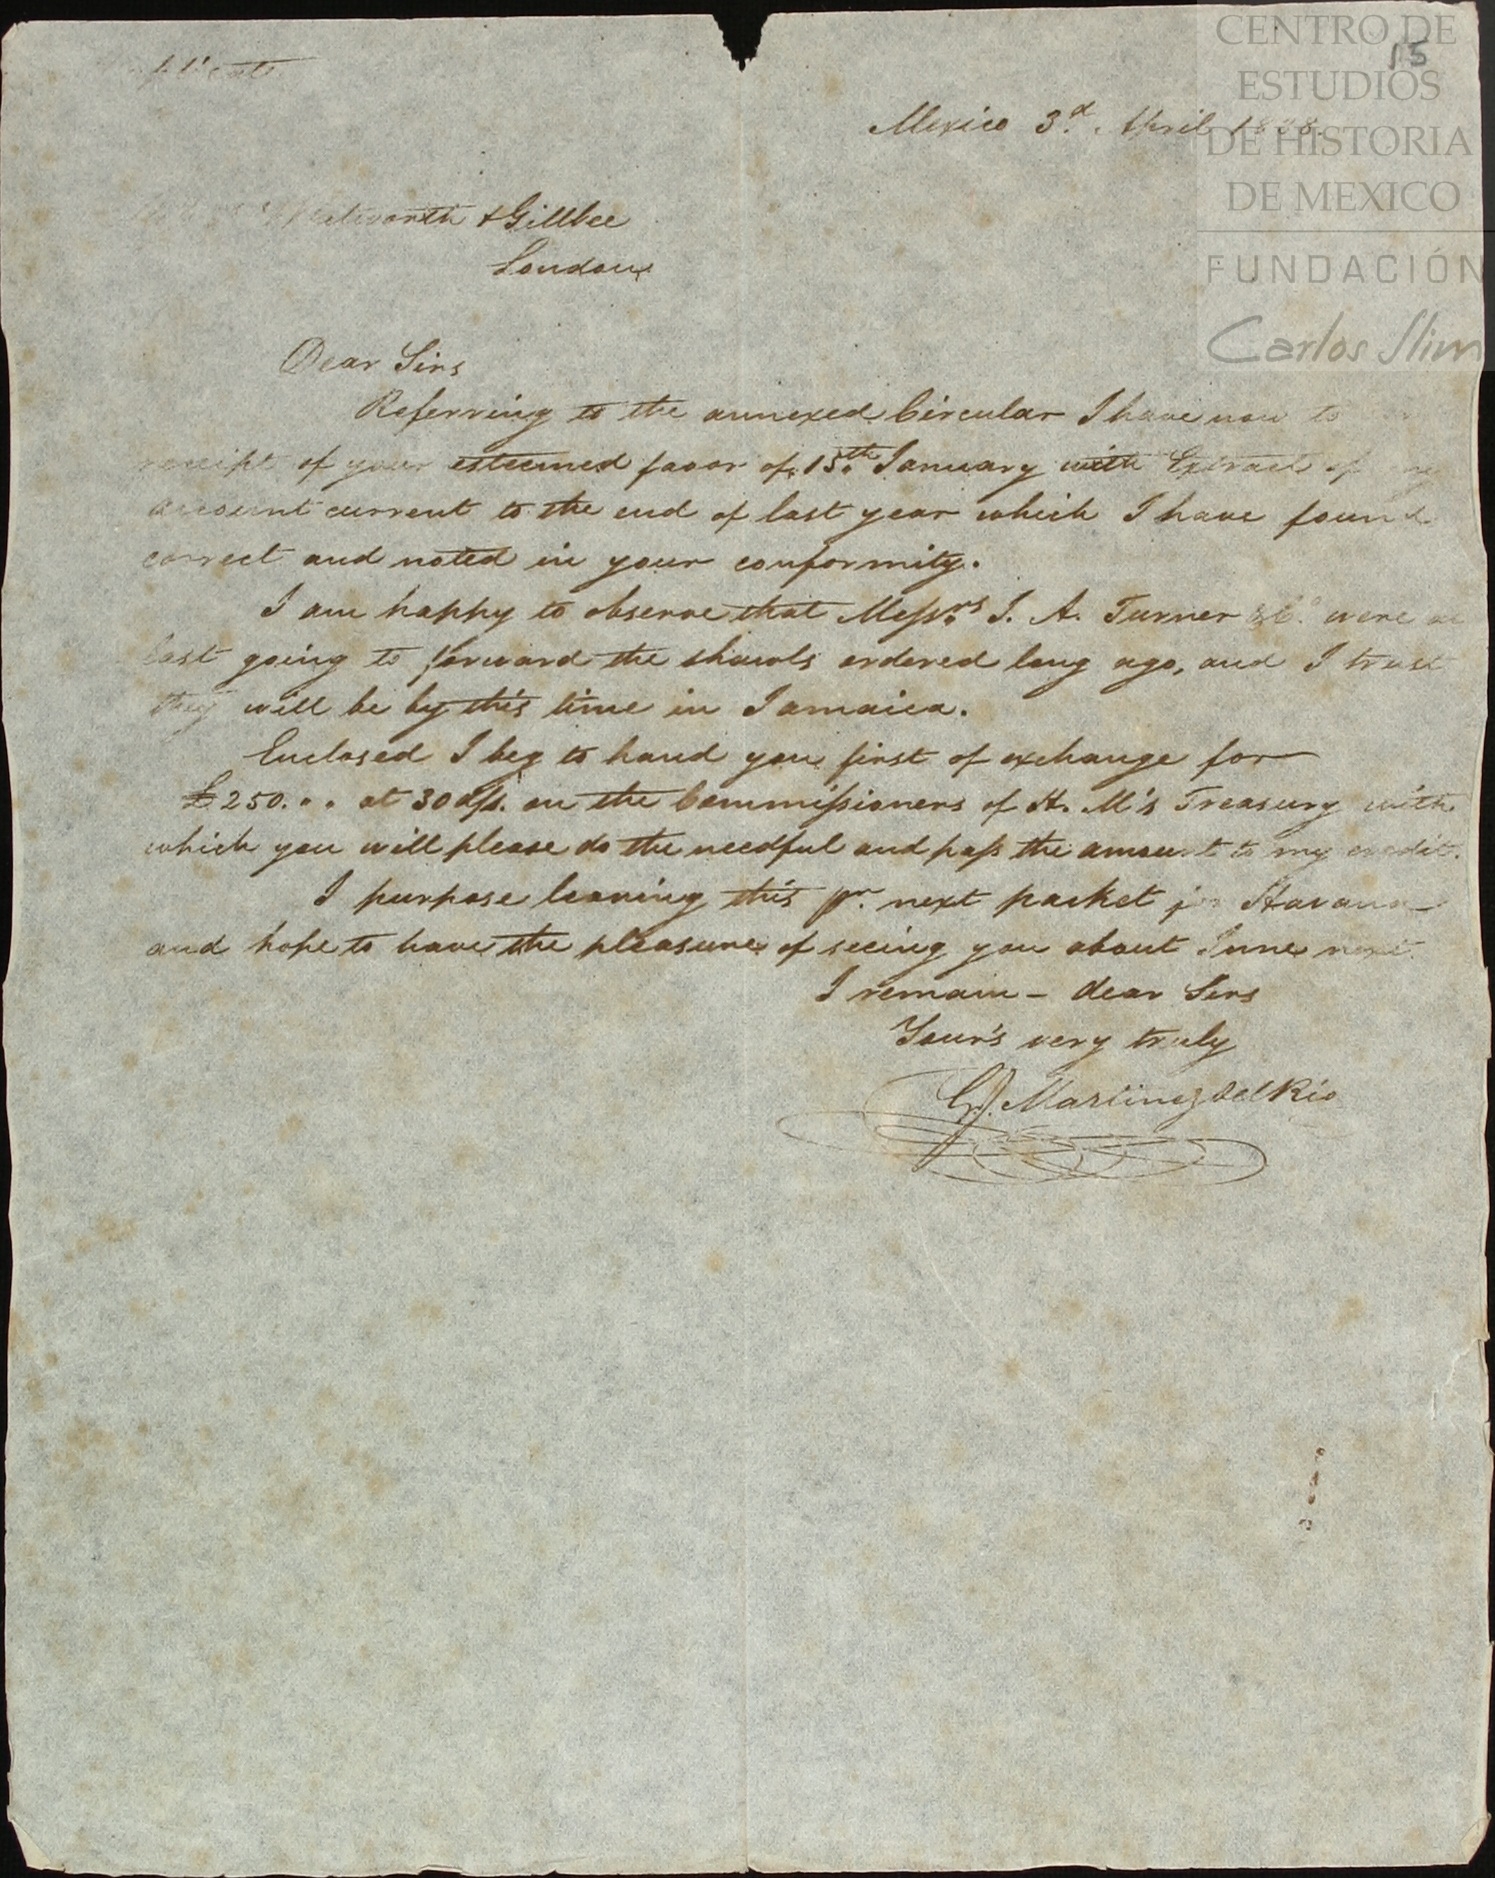 15
Mexico 3.d April
& Gillbee
London
Dear Sirs
Referring to the annexed Circular I have now to
receipt of your esteemed favor of 15.th January with Extract of
account current to the end of last year which I have found
correct and noted in your conformity.
I am happy to observe that Messrs J. A. Turner & Co. were at
last going to forward the shawls ordered long ago, and I trust
they will be by this time in Jamaica.
Enclosed I beg to hand you first of exchange for
£250. " " at 30 d/s. on the Commissioners of H. M's Treasury with
which you will please do the needful and pass the amount to my credit.
I purpose leaving this pr. next packet for Havana
and hope to have the pleasure of seeing you about June next.
I remain - dear Sirs
Your's very truly
G. J. Martinez del Rio
CENTRO DE
ESTUDIOS
DE HISTORIA
DE MEXICO
FUNDACIÓN
Carlos Slim